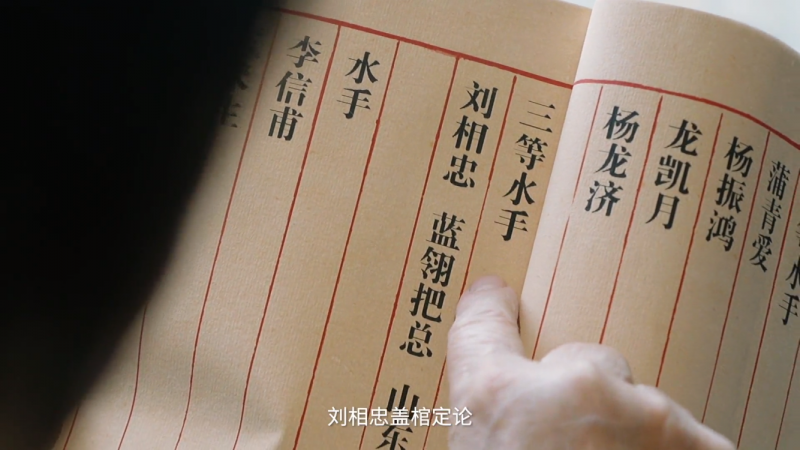 水手
蒲青爱
杨振鸿
龙凯月
杨龙济
三等水手
刘相忠 蓝翎把总 山东
水手
李信甫
刘相忠盖棺定论